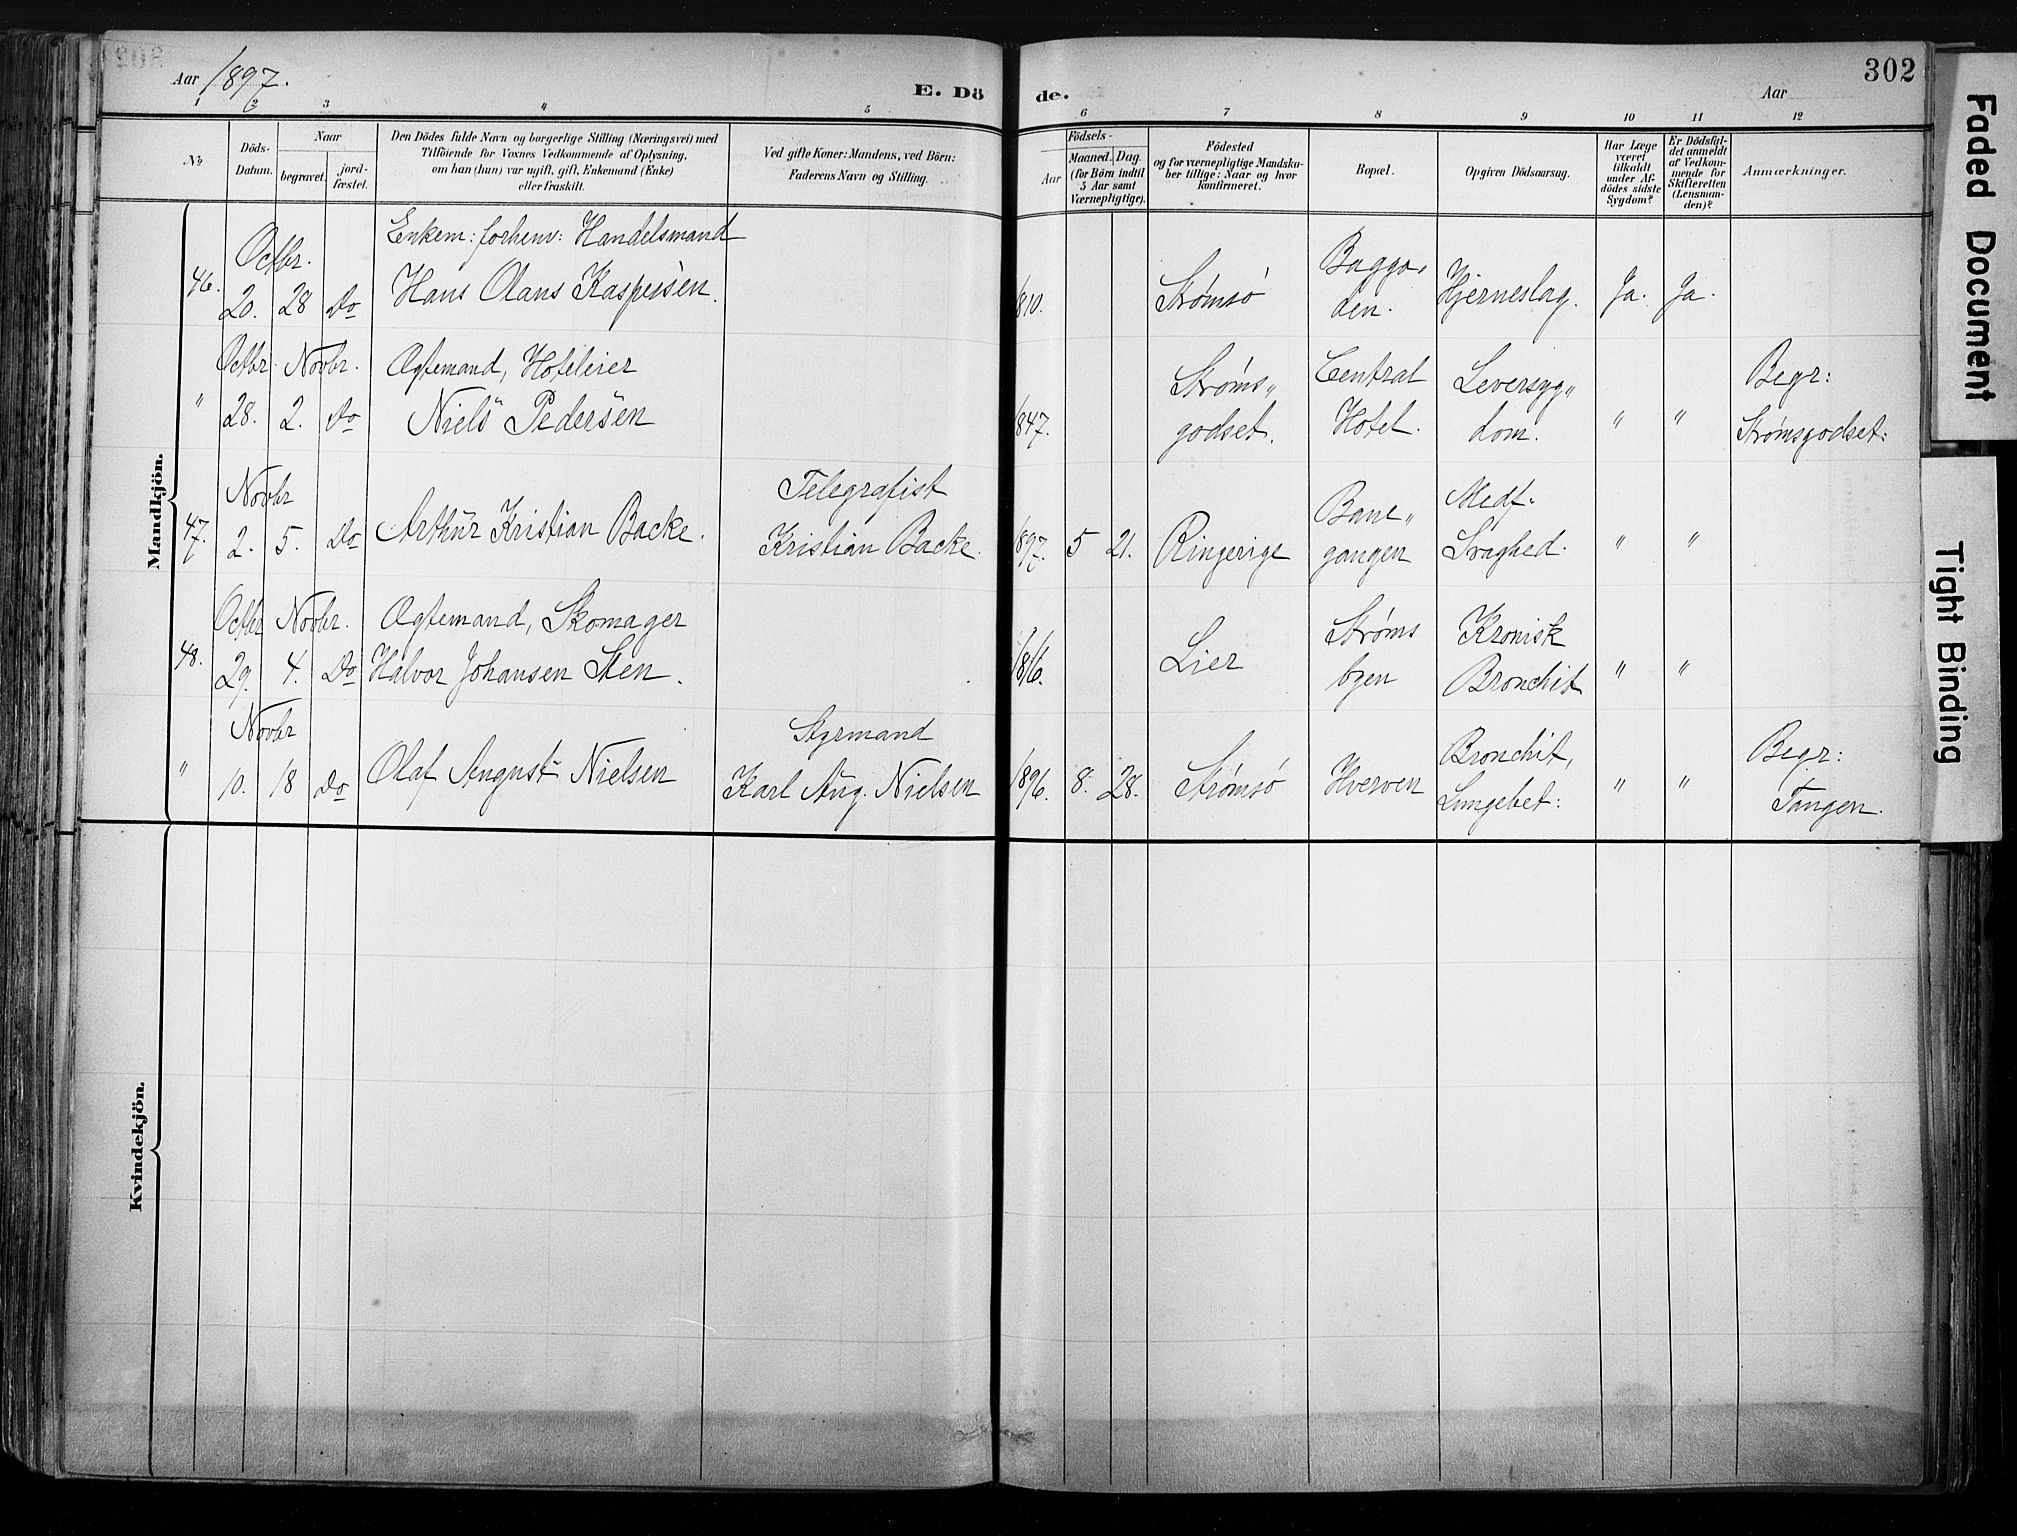 302
Aar 1897.
E. Dö de.
Aar
1 2 3 4 5 6 7 8 9 10 11 12
No
Döds-
Datum.
Naar
begravet.
jord-
fæstet.
Den Dödes fulde Navn og borgerlige Stilling (Næringsvei) med
Tilföiende for Voxnes Vedkommende af Oplysning,
om han (hun) var ugift, gift, Enkemand (Enke)
eller fraskilt.
Ved gifte Koner: Mandens, ved Börn:
Faderens Navn og Stilling.
Födsels-
Aar
Maaned. Dag.
(for Börn indtil
5 Aar samt
Værnepligtige).
Födested
og for værnepligtige Mandska-
ber tillige: Naar og hvor
konfirmeret.
Bopæl.
Opgiven Dödsaarsag.
Har Læge
været
tilkaldt
under Af-
dödes sidste
Sygdom?
Er Dödsfal-
det anmeldt
af Vedkom-
mende for
Skifteretten
(Lensman-
den)?
Anmærkninger.
Mandkjön.
Enkem: forhenv: Handelsmand
Octbr. Bagga,
46. 20. 28 Do Hans Olaus Kaspersen. 1810. Strømsö den. Hjerneslag. Ja. Ja.
Octbr. Novbr. Ægtemand, Hoteleier Strøms„ Central Leversyg„ Begr:
" 28. 2. Do Niels Pedersen 1847. godset. Hotel. dom. " " Strømsgodset:
Novbr Telegrafist Bane„ Medf.
47. 2. 5. Do Arthur Kristian Backe. Kristian Backe. 1897. 5 21. Ringerige gangen Svaghed. " "
Octbr Novbr. Ægtemand, Skomager Strøms Kronisk
48. 29. 4. Do Halvor Johansen Sten. 1816. Lier byen Bronchit " "
Novbr Styrmand Bronchit, Begr:
" 10. 18 Do Olaf August Nielsen Karl Aug. Nielsen 1896. 8. 28. Strømsö Hverven Lungebet: " " Tangen.
Kvindekjön.
Faded Document
Tight Binding